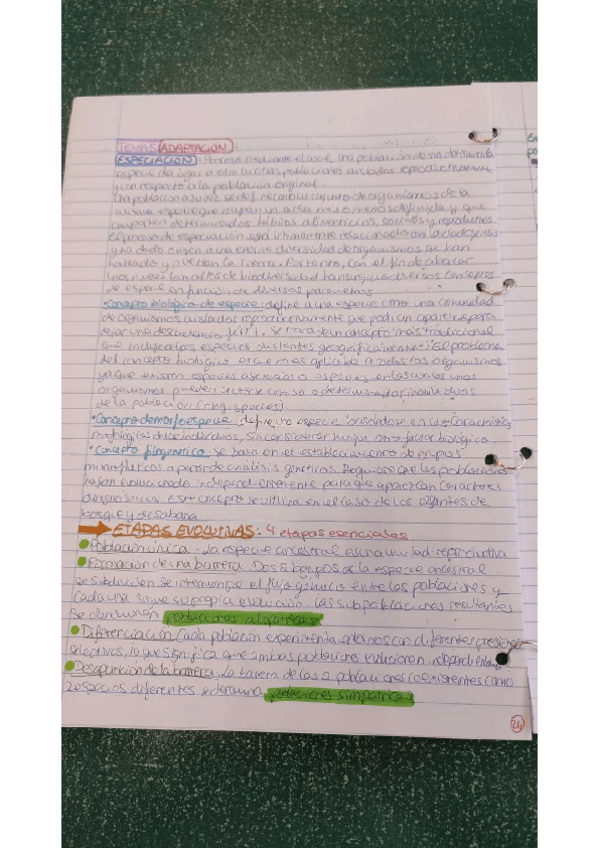 TEMA 3 ADAPTACIÓN:
ESPECIACIÓN: Proceso mediante el cual una población de una determinada
especie da lugar a otra u otras poblaciones aisladas reproductivamente
y con respecto a la población original.
Una población a su vez es del conjunto de organismos de la
misma especie que ocupan un área más o menos definida y que
comparten determinados hábitos alimenticios, sociales y reproductores.
El proceso de especiación está íntimamente relacionado con la cladogénesis
y ha dado origen a una enorme diversidad de organismos que han
habitado y pueblan la tierra. Por tanto, con el fin de abarcar
unos niveles tan altos de biodiversidad han surgido diversos conceptos
de especie en función de diversos parámetros.
•Concepto biológico de especie: define a una especie como una comunidad
de organismos aislados reproductivamente que podrían aparearse para
dejar una descendencia fértil. Se trata de un concepto más tradicional
que incluye a las especies distantes geográficamente. El problema
del concepto biológico es que no es aplicable a todos los organismos
ya que existen especies asexuales o especies en las cuales unos
organismos pueden solo o determinados individuos
de la población (ring species).
•Concepto de morfoespecie: define una especie basándose en las características
morfológicas de los individuos, sin considerar ningún otro factor biológico.
•Concepto filogenético: se basa en el establecimiento de grupos
monofiléticos a partir de análisis genéticos. Requiere que las poblaciones
hayan evolucionado independientemente para que aparezcan caracteres
diagnósticos. Este concepto se utiliza en el caso de los elefantes de
bosque y de sabana.
ETAPAS EVOLUTIVAS: 4 etapas esenciales
Población única: La especie ancestral es una unidad reproductiva
Formación de una barrera: Dos grupos de la especie ancestral
se subdividen se interrumpe el flujo génico entre las poblaciones y
cada una sigue su propia evolución. Las subpoblaciones resultantes
se denominan poblaciones alopátricas
Diferenciación: Cada población experimenta entornos con diferentes presiones
selectivas, lo que significa que ambas poblaciones evolucionen independientemente
Desaparición de la barrera: la barrera de las 2 poblaciones coexistentes como
2 especies diferentes se denomina poblaciones simpátricas
24